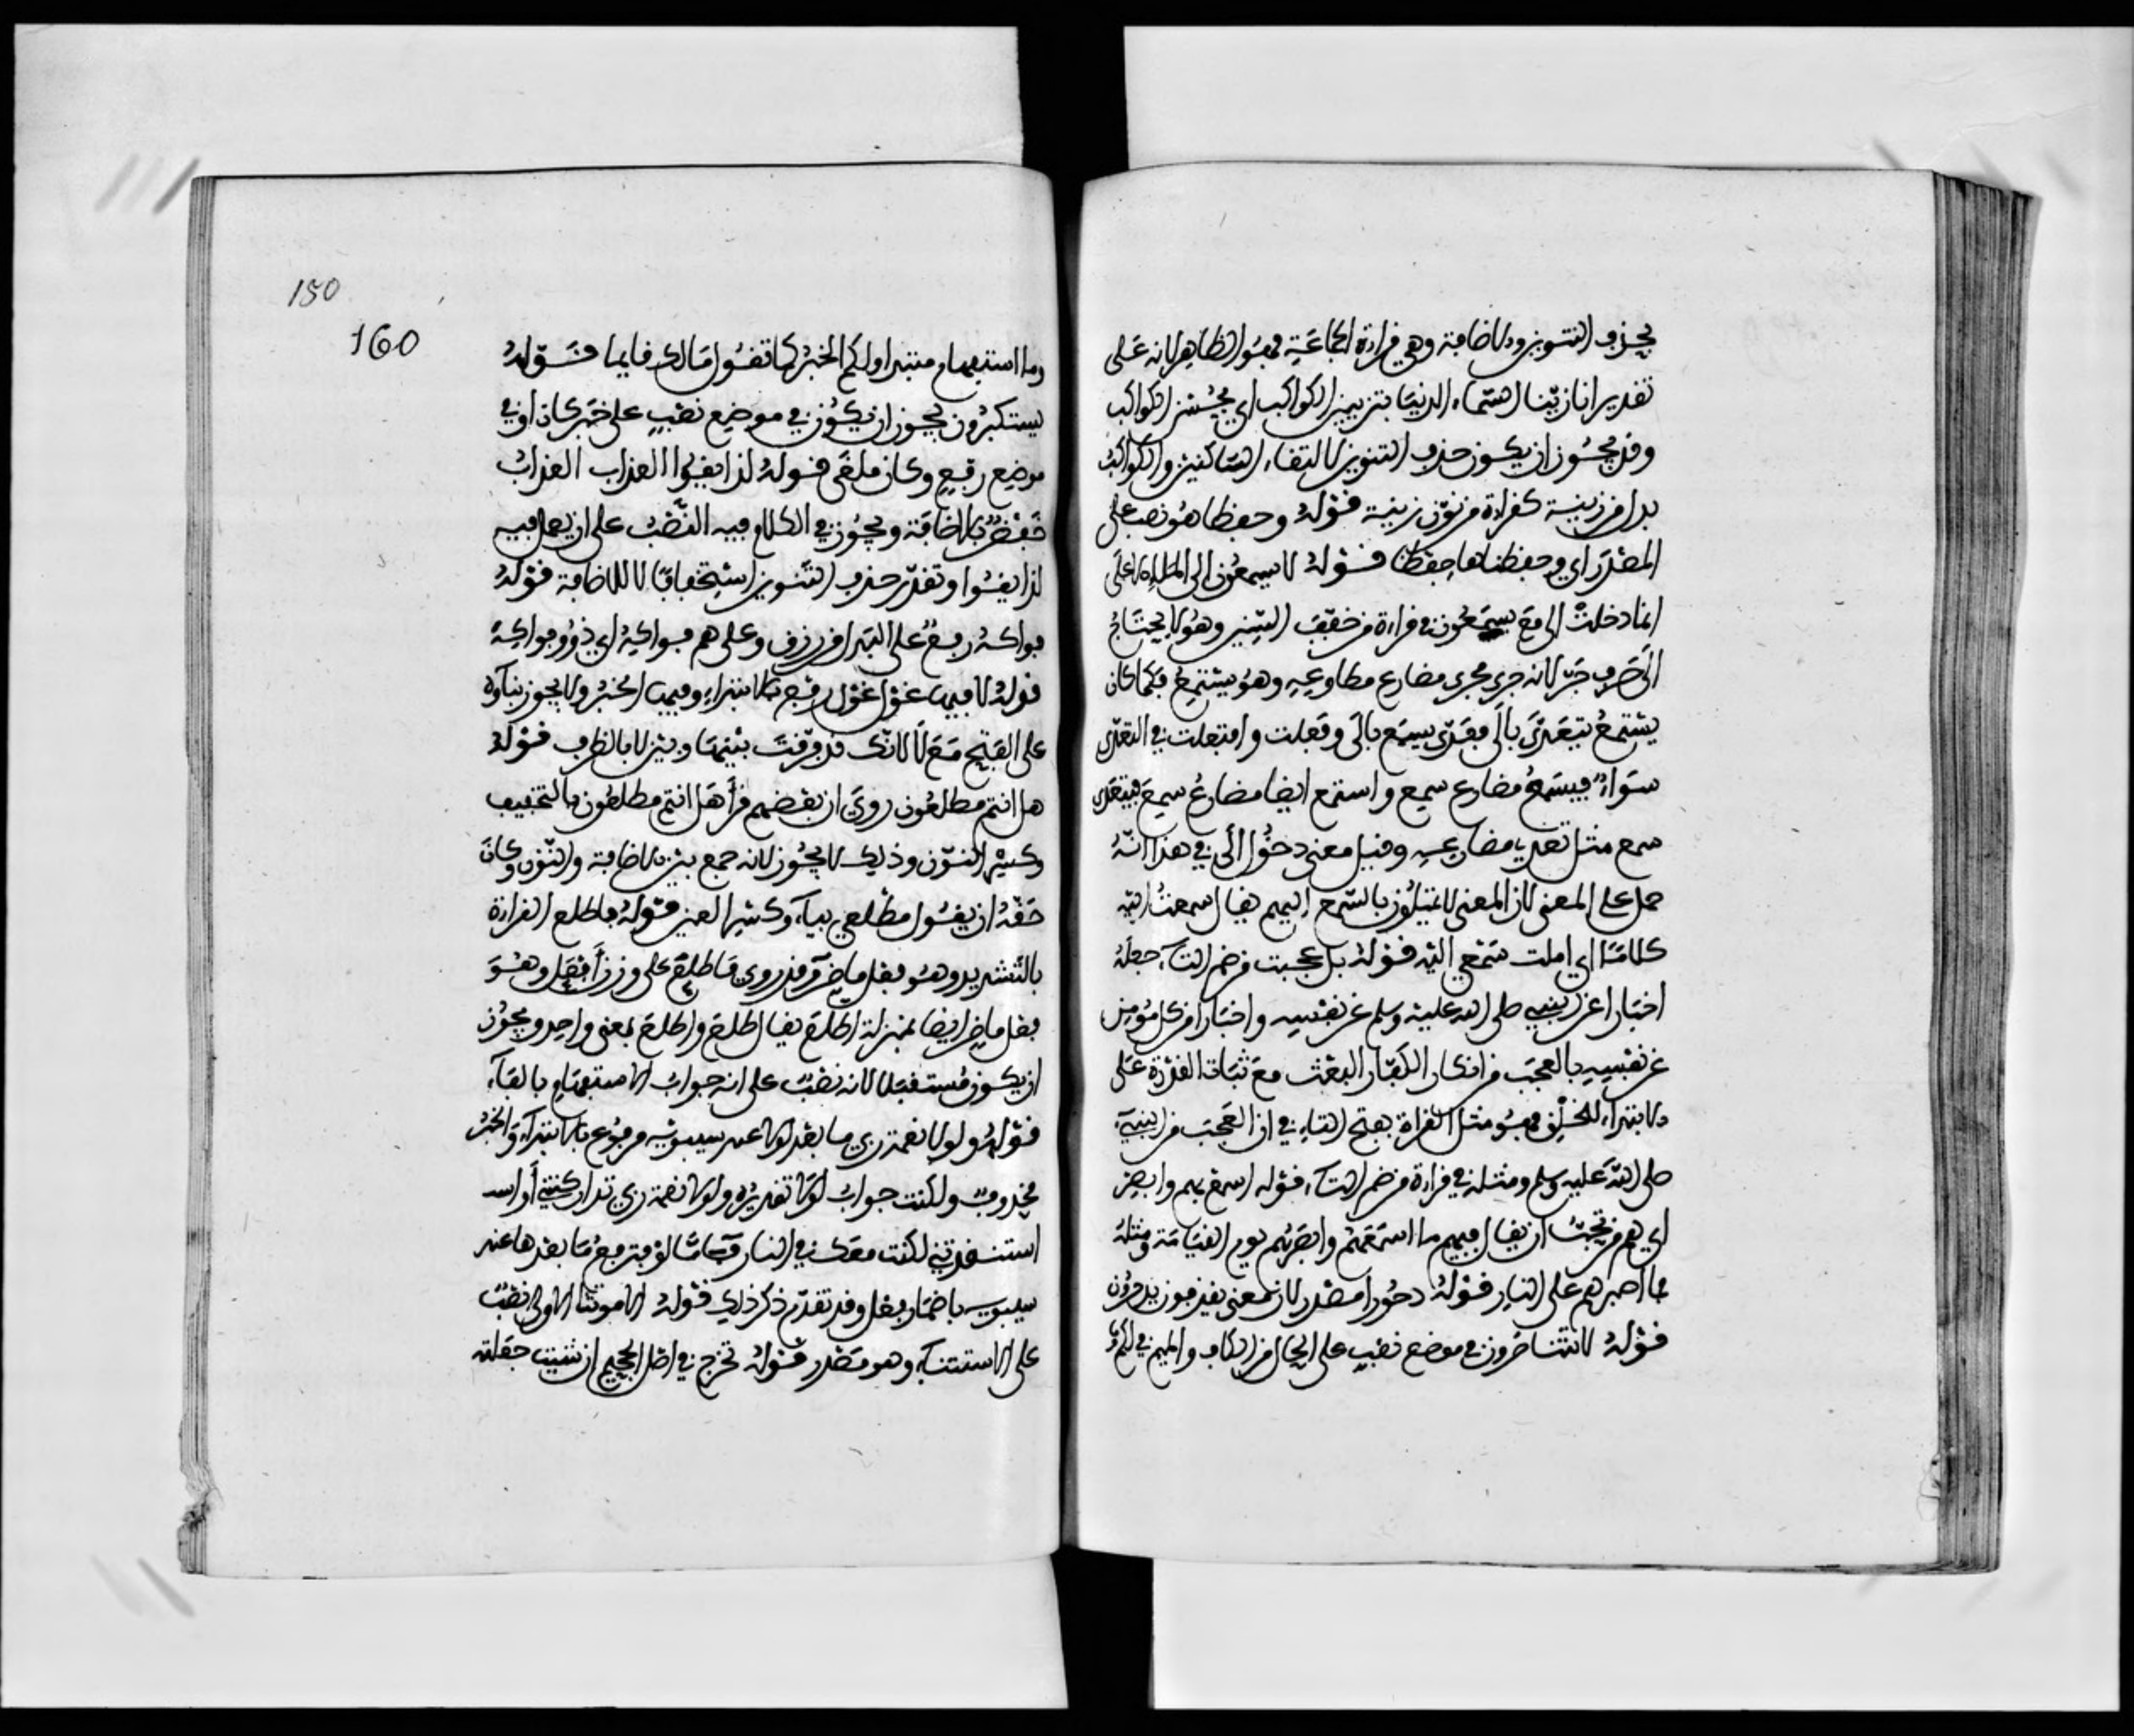 بحذف التنوين والاضافة وهي قراءة الجماعة فهو الظاهر لانه على
تقدير انا زينا السماء الدنيا بتزيين الكواكب اي بحسن الكواكب
وقد يجوز ان يكون حذف التنوين لالتقاء الساكنين والكواكب
بدل من زينة كقراءة من نون زينة قوله وحفظا هو نصب على
المصدر اي وحفظناها حفظا قوله لا يسمعون الى الملإ الاعلى
انما دخلت الى مع يسمعون في قراءة من خفف السين وهو لا يحتاج
الى حرف جر لانه جرى مجرى مضارع مطاوعه وهو يستمع فكما كان
يستمع يتعدى بالى فعدي يسمع بالى وفعلت وافتعلت في التعدي
سواء فيسمع مضارع سمع واستمع ايضا مضارع سمع فتعدى
سمع مثل تعدي مضارعه وقيل معنى دخول الى في هذا انه
حمل على المعنى لان المعنى لا يميلون بالسمع اليهم يقال سمعت اليه
كلاما اي املت سمعي اليه قوله بل عجبت من ضم التاء جعله
اخبارا عن النبي صلى الله عليه وسلم عن نفسه واخبارا من كل مؤمن
عن نفسه بالعجب من انكار الكفار البعث مع ثبات القدرة على
الابتداء للخلق فهو مثل القراءة بفتح التاء في ان العجب من النبي
صلى الله عليه وسلم ومثله في قراءة من ضم التاء قوله اسمع بهم وابصر
اي هم من يجب ان يقال فيهم ما اسمعهم وابصرهم يوم القيامة ومثله
فما اصبرهم على النار قوله دحورا مصدر لان معنى يقذفون يدحرون
قوله لا تناصرون في موضع نصب على الحال من الكاف والميم في لكم
150
160
وما استفهام مبتدا ولكم الخبر كما تقول مالك قايما قوله
يستكبرون يجوز ان يكون في موضع نصب على خبر كان او في
موضع رفع وكان ملغى قوله لذايقوا العذاب العذاب
خفض بالاضافة ويجوز في الكلام فيه النصب على ان يعمل فيه
لذايقوا وتقدر حذف التنوين استخفافا لا للاضافة قوله
فواكه رفع على البدل من رزق وعلى هم فواكه اي ذوو فواكه
قوله لا فيها غول غول رفع بالابتداء وفيها الخبر ولا يجوز بناؤه
على الفتح مع لا لانك قد فرقت بينها وبين لا بالظرف قوله
هل انتم مطلعون روي ان بعضهم قرأ هل انتم مطلعون بالتخفيف
وكسر النون وذلك لا يجوز لانه جمع بين الاضافة والنون وكان
حقه ان يقول مطلعي بياء وكسر العين قوله فاطلع القراءة
بالتشديد وهو فعل ماض وقد روي فاطلع على وزن أفعل وهو
فعل ماض ايضا بمنزلة اطلع يقال اطلع واطلع بمعنى واحد ويجوز
ان يكون مستقبلا لانه نصب على انه جواب الاستفهام بالفاء
قوله ولولا نعمة ربي ما بعد لولا عند سيبويه مرفوع بالابتداء والخبر
محذوف ولكنت جواب لولا تقديره ولولا نعمة ربي تداركتني أو
استنقذتني لكنت معك في النار فاما لو فترفع ما بعدها عند
سيبويه باضمار فعل وقد تقدم ذكر ذلك قوله الا موتتنا الاولى نصب
على الاستثناء وهو مصدر قوله تخرج في اصل الجحيم ان شيت جعلته